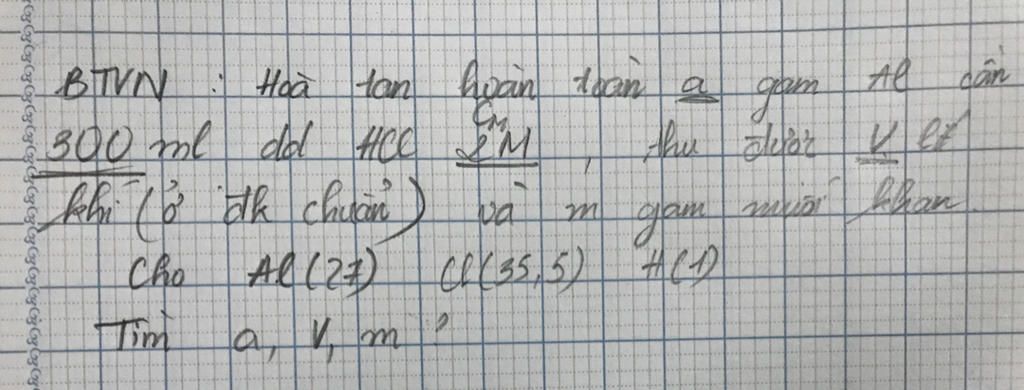 BTVN : Hoà tan hoàn toàn a gam Al cần
300 ml dd HCl 2M , thu được V lít
CM
khí (ở đk chuẩn) và m gam muối khan.
Cho Al(27) Cl(35,5) H(1)
Tìm a, V, m ?